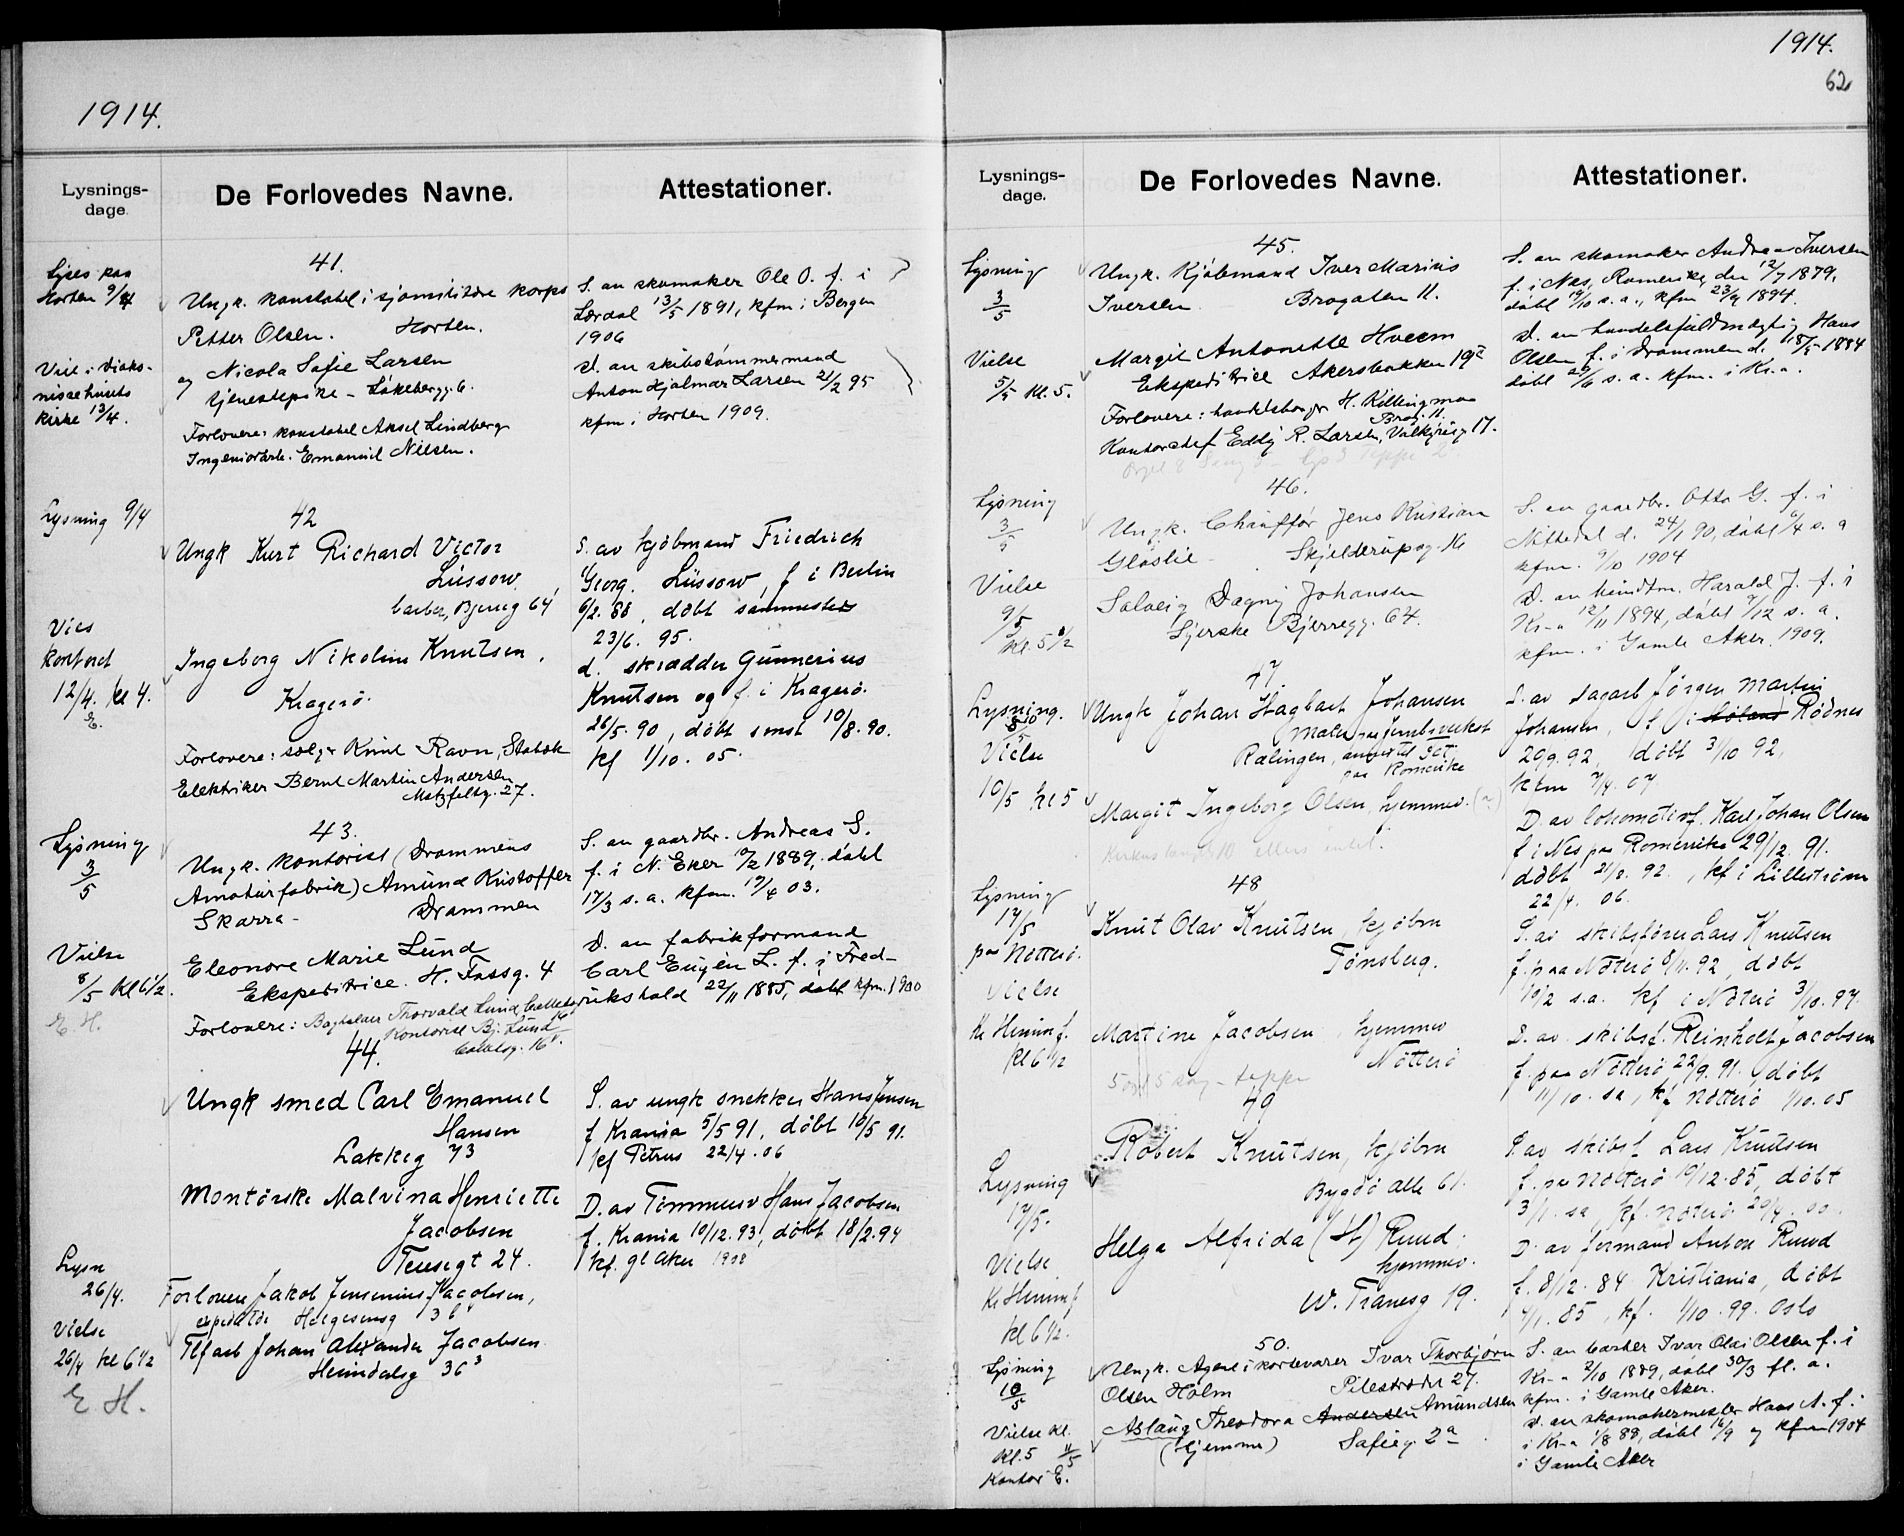 1914.
Lysnings-
dage.
De Forlovedes Navne.
Attestationer.
Lyses paa
Horten 9/4
Viel. i Diako-
nissehusets
kirke 13/4.
41.
Ungk. konstabel i sjømilitære korps
Petter Olsen. Horten.
og Nicola Sofie Larsen
tjenestepike - Løkebergg. 6.
Forlovere: konstabel Aksel Lindberg
Ingeniørarb. Emanuel Nilsen.
S. av skomaker Ole O. f. i
Lærdal 13/5 1891, kfm. i Bergen
1906
D. av skibstømmermand
Anton Hjalmar Larsen 21/2 95
kfm. i Horten 1909.
Lysning 9/4
Vies
kontoret
12/4. kl 4.
E.
42
Ungk Kurt Richard Victor
Lüssow
barber, Bjerreg 64
Ingeborg Nikoline Knutsen,
Kragerø.
Forlovere: sølvgr Knut Ravn, Stabæk
Elektriker Bernt Martin Andersen
Motzfeltg. 27.
S. av kjøbmand Friedrich
Georg. Lüssow, f i Berlin
6/2. 88, døbt sammesteds
23/6. 95.
d. skrædder Gunnerius
Knutsen og f. i Kragerø.
26/5. 90, døbt smst 10/8. 90.
kf 1/10. 05.
Lysning
3/5
Vielse
8/5 Kl 6 1/2.
E. H.
43.
Ungk. kontorist (Drammens
Amaturfabrik) Amund Kristoffer
Skarra - Drammen
Eleonore Marie Lund
Ekspeditrice. H. Fossg. 4
Forlovere: Bagholder Thorvald Lund
Kontorist Bj. Lund
S. av gaardbr. Andreas S.
f. i N. Eker 1889, døbt
17/3 s. a. kfm. 19/4 03.
D. av fabrikformand
Carl Eugèn L. f. i Fred-
rikshald 22/11 1885, døbt kfm. 1900
Lysn
26/4.
Vielse
26/4 kl 6 1/2
E. H.
44.
Ungk smed Carl Emanuel
Hansen
Lakkeg 73
Montørske Malvina Henriette
Jacobsen
Teusegt 24.
Forlovere Jakob Jensenius Jacobsen,
Helgesensg 36
Tlfarb Johan Alexander Jacobsen
Heimdalsg 36³
S. av ungk snekker Hans Jensen
f Krania 5/5 91, døbt 10/5 91.
kf Petrus 22/4. 06
D. av Tømmerm Hans Jacobsen
f. Krania 10/12. 93, døbt 18/2. 94
kf. gl Aker 1908
1914.
62
Lysnings-
dage.
De Forlovedes Navne.
Attestationer.
Lysning
3/5
Vielse
5/5 Kl. 5.
45.
Ungk. Kjøbmand Iver Marius
Iversen Brogaten 11.
Margit Antonette Hveem
Ekspeditrice Akersbakken 19
Forlovere: handelsborger H. Killingmo
Brog. 11
Kontorchef Eddy R. Larsen, Valkyrieg 17.
S. av skomaker Andreas Iversen
f. i Nes, Romerike, den 12/7 1879,
døbt 19/10 s. a., kfm 23/9 1894.
D. av handelsfuldmægtig Hans
Olsen f. i Drammen d. 18/5 1884
døbt 29/6 s. a. kfm. i Kr.a.
Lysning
3/5
Vielse
9/5
kl. 5 1/2
46.
Ungk. Chauffør Jens Kristian
Gløslie - Skjelderupsg. 16
Solveig Dagny Johansen
Syerske Bjerregg. 64.
S. av gaardbr. Otto G. f. i
Nittedal d. 24/1 90, døbt 6/4 s. a
kfm. 9/10 1904
D. av hindtm. Harald J. f. i
Kr-a 12/11 1894, døbt 9/12 s. a.
kfm. i Gamle Aker. 1909.
Lysning.
Vielse
10/5 kl 5
47
Ungk Johan Hagbart Johansen
Maler paa Jernbverkst
Rælingen,
paa Romerike
Margit Ingeborg Olsen, hjemmev.
S. av sagarb Jørgen Martin
Johansen, f i Høland Rødnes
29/9. 92, døbt 31/10 92,
kfm 7/4. 07.
D. av lokomotivf. Karl Johan Olsen
f i Nes paa Romerike 29/12. 91.
døbt 21/2. 92., kf i Lillestrøm
22/4. 06.
Lysning
17/5
paa Nøtterø.
Vielse
kl 6 1/2
48
Knut Olav Knutsen, kjøbm
Tønsberg.
Martine Jacobsen, hjemmev
Nøtterø
S. av skibsfører Lars Knutsen
f. paa Nøterø 8/11. 92, døbt
10/2 s.a. kf i Nøterø 3/10. 97.
D. av skibsf. Reinholt Jacobsen
f. paa Nøtterø 22/9. 91, døbt
11/10. sa, kf Nøtterø 1/10. 05
Lysning
17/5.
Vielse
kl 6 1/2.
49
Robert Knutsen, kjøbm
Bygdø alle 61.
Helga Alfrida (H) Ruud.
hjemmev.
W. Tranesg 19.
S av skibsf Lars Knutsen
f. paa Nøtterø 19/12. 85, døbt
3/1. sa, kf. Nøterø 29/4. 00.
D. av formand Anton Ruud
f. 8/12. 84 Kristiania, døbt
4/1. 85, kf. 1/10. 99. Oslo
Lysning
10/5
Vielse Kl.
Kl. 5 11/5
Kontor E.
50.
Ungk. Agent i kortevarer Ivar Thorbjørn
Olsen Holm Pilestrædet 27.
Aslaug Theodora Andersen Amundsen
(hjemme) Sofieg. 2ª
S. av barber Ivar Olai Olsen f. i
Kr-a 2/10 1889, døbt 30/3 fl. a.
kfm. i Gamle Aker.
D. av skomakermester Hans A. f. i
i Kr-a 1/8 88, døbt 16/9 og kfm 1904
i Gamle Aker